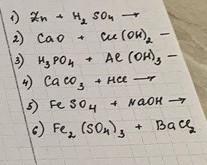 1) Zn + H₂SO₄ →
2) CaO + Cu(OH)₂ –
3) H₃PO₄ + Al(OH)₃ –
4) CaCO₃ + HCl →
5) FeSO₄ + NaOH →
6) Fe₂(SO₄)₃ + BaCl₂